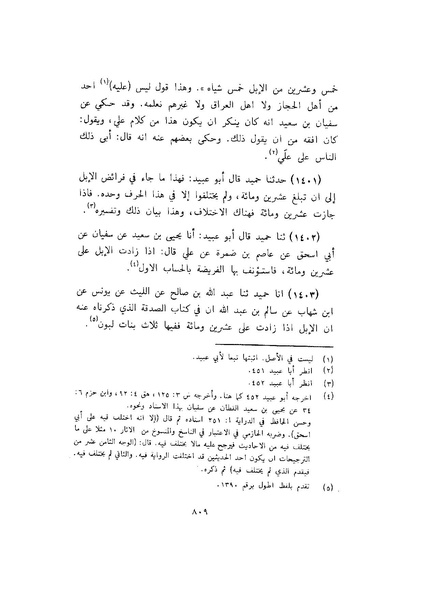 خمس وعشرين من الإبل خمس شياه». وهذا قول ليس (عليه)(١) احد
من أهل الحجاز ولا اهل العراق ولا غيرهم نعلمه. وقد حكي عن
سفيان بن سعيد انه كان ينكر ان يكون هذا من كلام علي، ويقول:
كان افقه من ان يقول ذلك. وحكى بعضهم عنه انه قال: أبى ذلك
الناس على عليّ(٢).
(١٤٠١) حدثنا حميد قال أبو عبيد: فهذا ما جاء في فرائض الإبل
إلى ان تبلغ عشرين ومائة، ولم يختلفوا إلا في هذا الحرف وحده. فاذا
جازت عشرين ومائة فهناك الاختلاف، وهذا بيان ذلك وتفسيره(٣).
(١٤٠٢) ثنا حميد قال أبو عبيد: أنا يحيى بن سعيد عن سفيان عن
أبي اسحق عن عاصم بن ضمرة عن علي قال: اذا زادت الإبل على
عشرين ومائة، فاستؤنف بها الفريضة بالحساب الاول(٤).
(١٤٠٣) انا حميد ثنا عبد الله بن صالح عن الليث عن يونس عن
ابن شهاب عن سالم بن عبد الله ان في كتاب الصدقة الذي ذكرناه عنه
ان الإبل اذا زادت على عشرين ومائة ففيها ثلاث بنات لبون(٥).
(١) ليست في الأصل. اثبتها تبعا لأبي عبيد.
(٢) انظر أبا عبيد ٤٥١.
(٣) انظر أبا عبيد ٤٥٢.
(٤) اخرجه أبو عبيد ٤٥٢ كما هنا. وأخرجه ش ٣: ١٢٥، هق ٤: ٩٢، وابن حزم ٦:
٣٤ عن يحيى بن سعيد القطان عن سفيان بهذا الاسناد ونحوه.
وحسن الحافظ في الدراية ١: ٢٥١ اسناده ثم قال (إلا انه اختلف فيه على أبي
اسحق). وضربه الحازمي في الاعتبار في الناسخ والمنسوخ من الاثار ١٠ مثلا على ما
يختلف فيه من الاحاديث فيرجح عليه مالا يختلف فيه. قال: (الوجه الثامن عشر من
الترجيحات ان يكون احد الحديثين قد اختلفت الرواية فيه. والثاني لم يختلف فيه.
فيقدم الذي لم يختلف فيه) ثم ذكره.
(٥) تقدم بلفظ اطول برقم ١٣٩٠.
٨٠٩